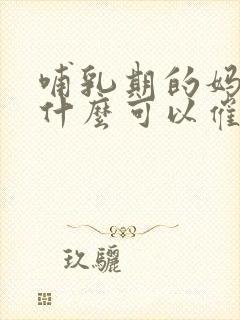 哺乳期的妈
什麼可以催
玖驪